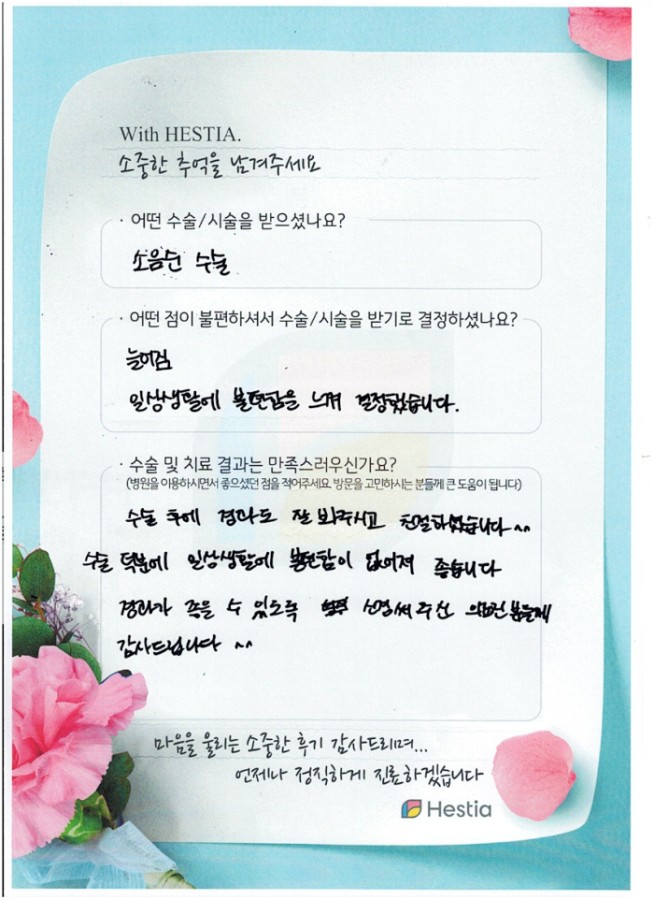 With HESTIA.
소중한 추억을 남겨주세요
· 어떤 수술/시술을 받으셨나요?
소음순 수술
· 어떤 점이 불편하셔서 수술/시술을 받기로 결정하셨나요?
늘어짐
일상생활에 불편함을 느껴 결정했습니다.
· 수술 및 치료 결과는 만족스러우신가요?
(병원을 이용하시면서 좋으셨던 점을 적어주세요. 방문을 고민하시는 분들께 큰 도움이 됩니다)
수술 후에 경과도 잘 봐주시고 친절하셨습니다 ^^
수술 덕분에 일상생활에 불편함이 없어져 좋습니다
경과가 좋을 수 있도록 신경써 주신 의료진분들께
감사드립니다 ^^
마음을 울리는 소중한 후기 감사드리며...
언제나 정직하게 진료하겠습니다
Hestia